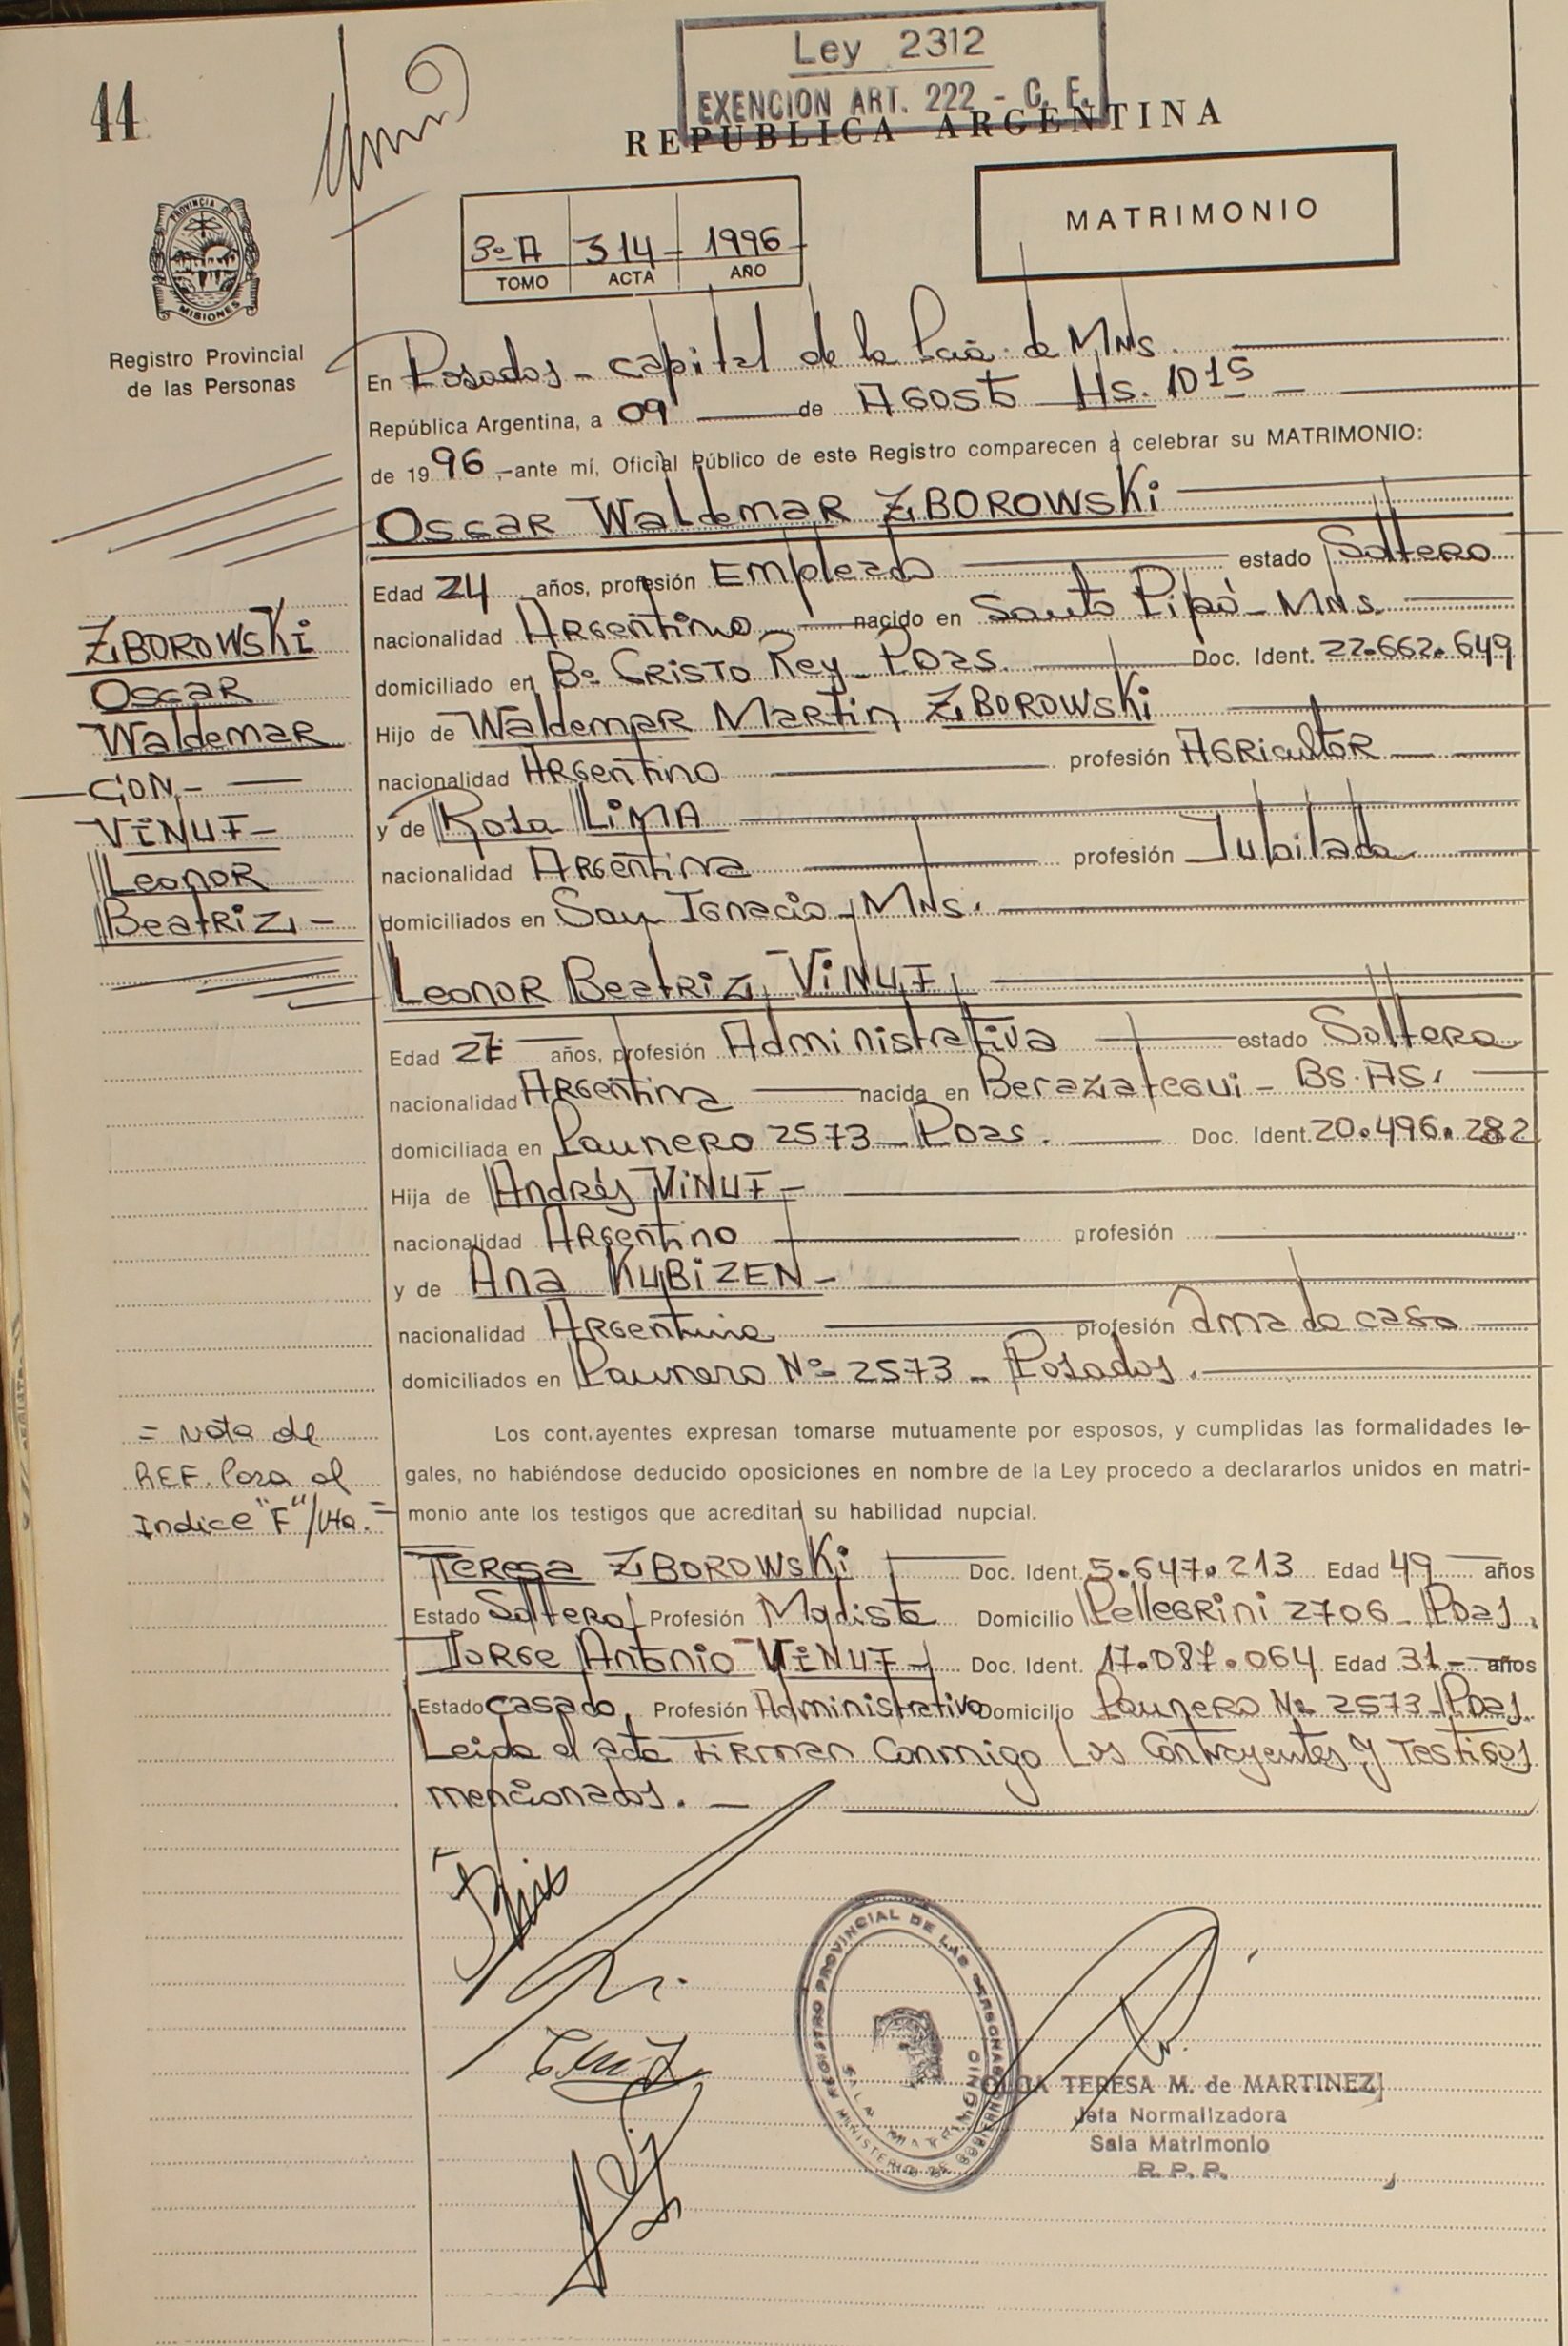 Ley 2312
EXENCION ART. 222 - C. F.
44
REPUBLICA ARGENTINA
MATRIMONIO
3º A 314 1996
TOMO ACTA AÑO
PROVINCIA DE
MISIONES
Registro Provincial
de las Personas
En Posadas - capital de la Pcia. de Mns.
República Argentina, a 09 de AGOSTO Hs. 10 15
de 1996, ante mí, Oficial Público de este Registro comparecen a celebrar su MATRIMONIO:
Oscar Waldemar ZBOROWSKi
Edad 24 años, profesión Empleado estado Soltero
nacionalidad Argentino nacido en Santo Pipó - Mns.
domiciliado en Bº Cristo Rey - Pdas. Doc. Ident. 22.662.649
Hijo de Waldemar Martin ZBOROWSKi
nacionalidad Argentino profesión Agricultor
y de Rosa LiMA
nacionalidad Argentina profesión Jubilada
domiciliados en San Ignacio - Mns.
ZBOROWSKi
Oscar
Waldemar
- CON -
ViNUI -
Leonor
Beatriz -
Leonor Beatriz ViNUI
Edad 27 años, profesión Administrativa estado Soltera
nacionalidad Argentina nacida en Berazategui - Bs. As.
domiciliada en Paunero 2573 - Pdas. Doc. Ident. 20.496.282
Hija de Andrés ViNUI -
nacionalidad Argentino profesión
y de Ana KUBiZEN -
nacionalidad Argentina profesión Ama de casa
domiciliados en Paunero Nº 2573 - Posadas.
= Nota de
REF. Para el
Indice "F"/Vta. =
Los cont.ayentes expresan tomarse mutuamente por esposos, y cumplidas las formalidades le-
gales, no habiéndose deducido oposiciones en nombre de la Ley procedo a declararlos unidos en matri-
monio ante los testigos que acreditan su habilidad nupcial.
Teresa ZBOROWSKi Doc. Ident. 5.647.213 Edad 49 años
Estado Soltera Profesión Modista Domicilio Pellegrini 2706 - Pdas.
Jorge Antonio ViNUI - Doc. Ident. 17.087.064 Edad 31 - años
Estado casado Profesión Administrativo Domicilio Paunero Nº 2573 - Pdas.
Leida el acta Firman Conmigo Los Contrayentes y Testigos
mencionados. -
REGISTRO PROVINCIAL DE LAS PERSONAS
MINISTERIO DE GOBIERNO
SALA MATRIMONIO
OLGA TERESA M. de MARTINEZ
Jefa Normalizadora
Sala Matrimonio
R. P. P.